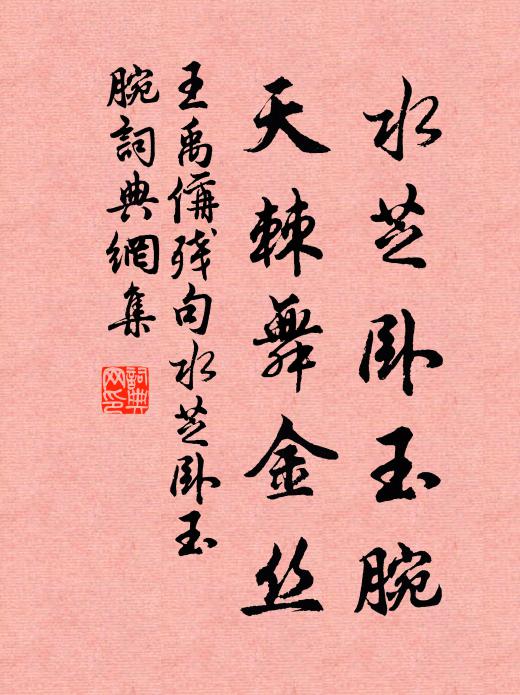 水芝卧玉腕
天棘舞金丝
王禹偁残句水芝卧玉
腕詞典網集
詞典网印